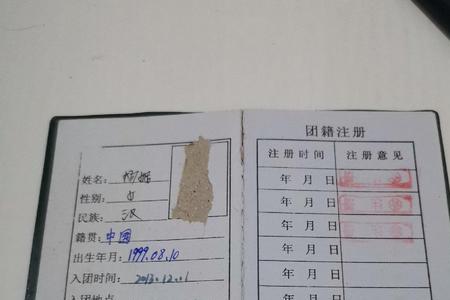 姓名：杨
性别：女
民族：汉
籍贯：中国
出生年月：1999.08.10
入团时间：2013.12.01
入团地点
团籍注册
注册时间 注册意见
年 月 日
年 月 日
年 月 日
年 月 日
年 月 日